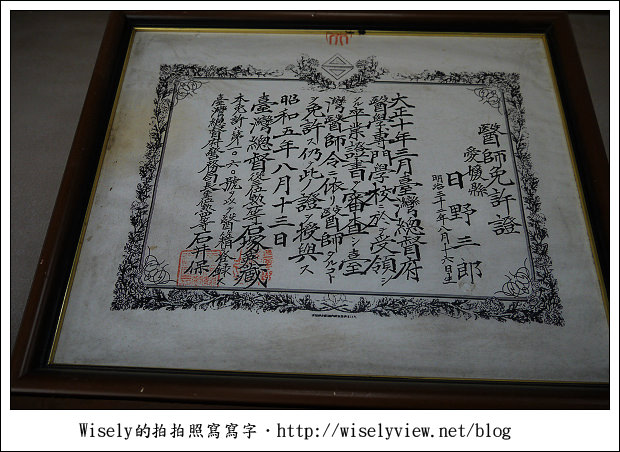 醫師免許證
愛媛縣
日野三郎
明治三十三年八月十六日生
大正十年三月臺灣總督府
醫學專門學校ニ於テ受領シ
タル卒業證書ヲ審査シ臺
灣醫師令ニ依リ醫師タルコト
ヲ免許ス仍此ノ證ヲ授與ス
昭和五年八月十三日
臺灣總督 石塚英藏
石井保
Wisely的拍拍照寫寫字・http://wiselyview.net/blog